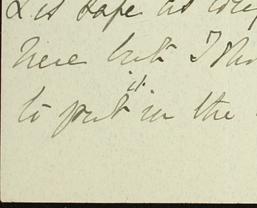 & is safe as
here but I
it
to put in the